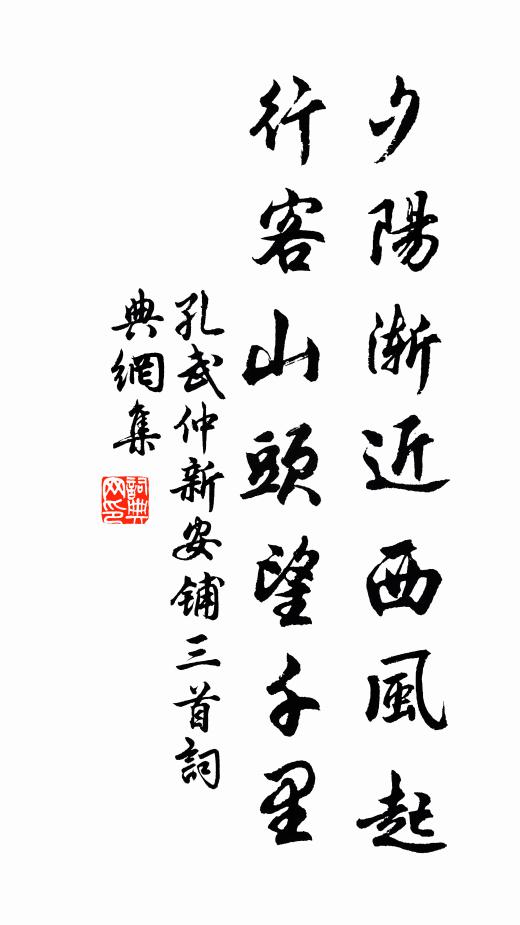 夕陽漸近西風起
行客山頭望千里
孔武仲新安鋪三首詞
典網集
詞典网印